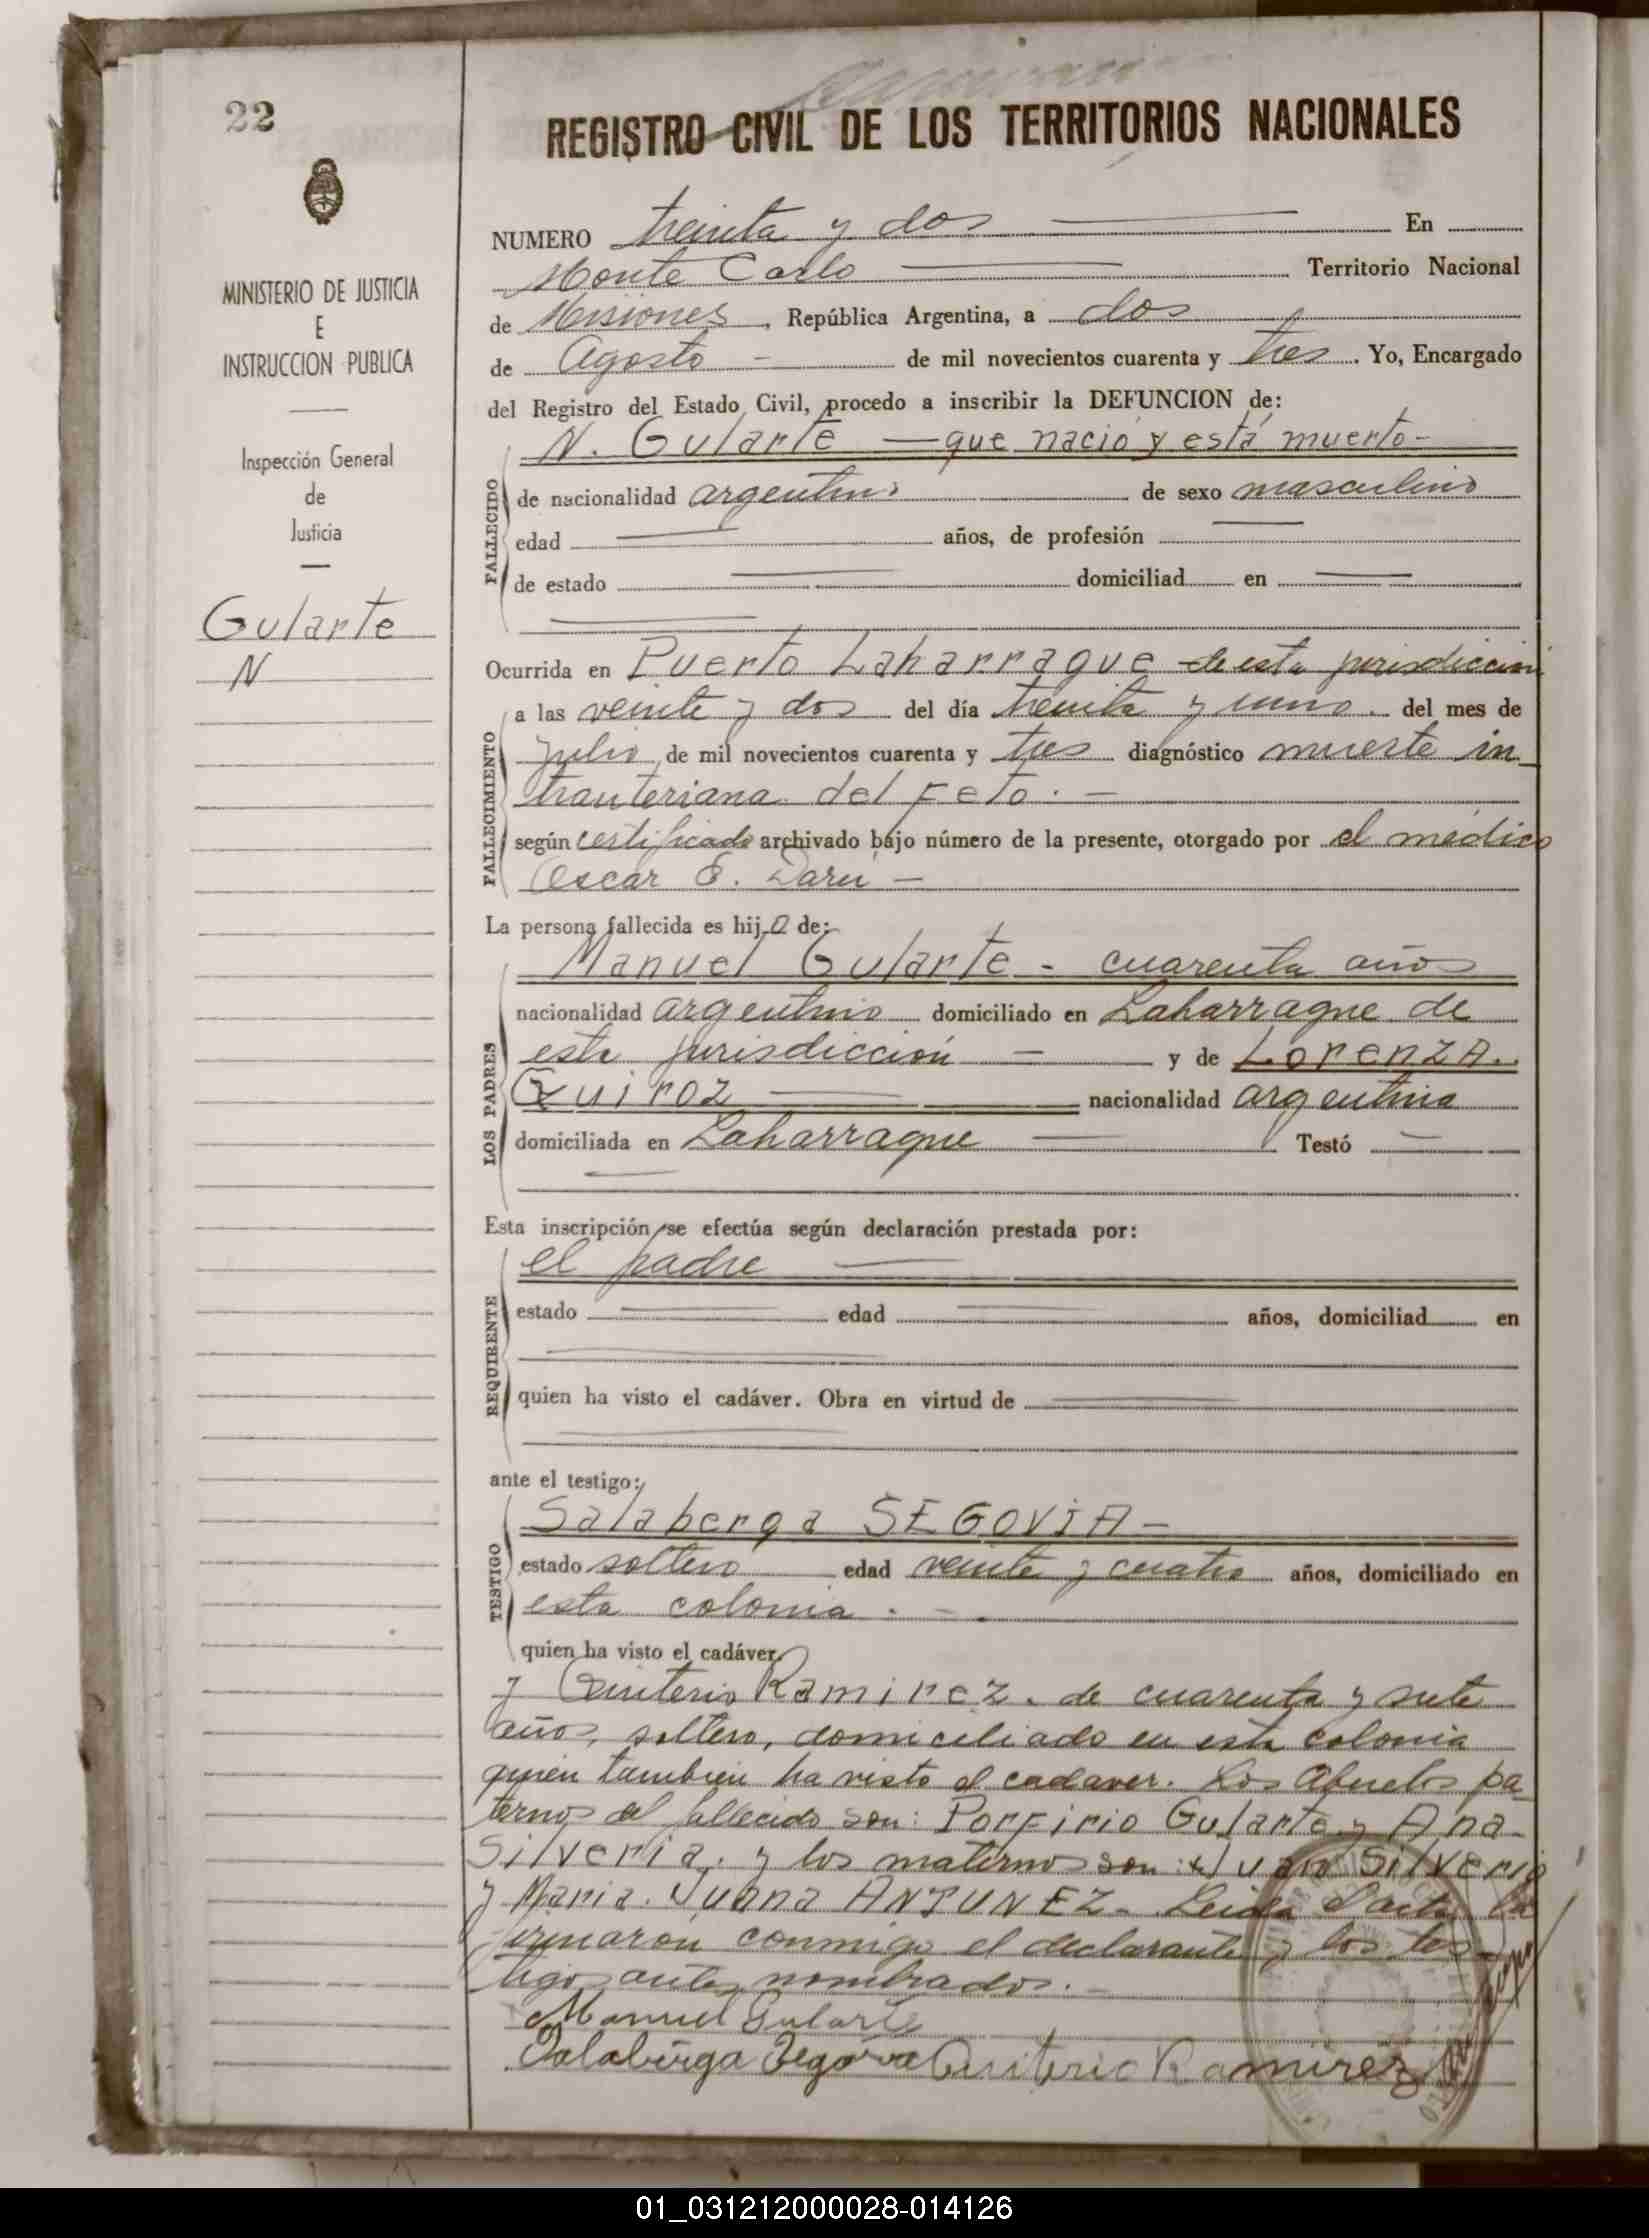 22
REGISTRO CIVIL DE LOS TERRITORIOS NACIONALES
MINISTERIO DE JUSTICIA
E
INSTRUCCION PUBLICA
Inspección General
de
Justicia
Gularte
N
NUMERO treinta y dos En
Monte Carlo Territorio Nacional
de Misiones, República Argentina, a dos
de Agosto - de mil novecientos cuarenta y tres. Yo, Encargado
del Registro del Estado Civil, procedo a inscribir la DEFUNCION de:
N. Gularte — que nació y está muerto -
FALLECIDO
de nacionalidad argentino de sexo masculino
edad años, de profesión
de estado domiciliad en
Ocurrida en Puerto Laharrague de esta jurisdicción
FALLECIMIENTO
a las veinte y dos del día treinta y uno. del mes de
julio, de mil novecientos cuarenta y tres diagnóstico muerte in-
trauteriana del Feto. -
según certificado archivado bajo número de la presente, otorgado por el médico
Oscar E. Darú -
La persona fallecida es hijo de:
LOS PADRES
Manuel Gularte - cuarenta años
nacionalidad argentino domiciliado en Laharrague de
esta jurisdicción - y de LorenzA.
Quiroz nacionalidad argentina
domiciliada en Laharrague Testó -
Esta inscripción se efectúa según declaración prestada por:
REQUIRENTE
el padre
estado edad años, domiciliad en
quien ha visto el cadáver. Obra en virtud de
ante el testigo:
TESTIGO
Salaberga SEGOViA -
estado soltero edad veinte y cuatro años, domiciliado en
esta colonia. -
quien ha visto el cadáver.
y Quiterio Ramirez. de cuarenta y siete
años, soltero, domiciliado en esta colonia
quien tambien ha visto el cadaver. Los Abuelos pa-
ternos del fallecido son: Porfirio Gularte y Ana
Silveria. y los maternos son: Juan Silverio
y Maria Juana ANTUNEZ. Leida el acta la
firmaron conmigo el declarante y los tes-
tigos antes nombrados. -
Manuel Gularte
Salabirga Segovia Quiterio Ramirez
01_031212000028-014126